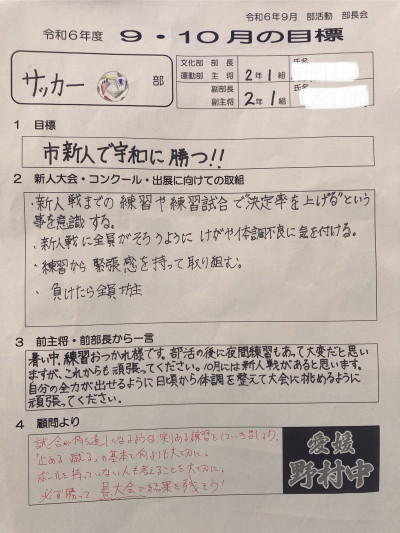 令和6年9月 部活動 部長会
令和6年度 9・10月の目標
サッカー 部
文化部 部長
運動部 主将
2年1組
氏名
副部長
副主将
2年1組
氏名
1 目標
市新人で宇和に勝つ!!
2 新人大会・コンクール・出展に向けての取組
・新人戦までの練習や練習試合で"決定率を上げる"という
事を意識する。
・新人戦に全員がそろうように けがや体調不良に気を付ける。
・練習から緊張感を持って取り組む。
・負けたら全員坊主
3 前主将・前部長から一言
暑い中、練習おつかれ様です。部活の後に夜間練習もあって大変だと思い
ますが、これからも頑張ってください。10月には新人戦があると思います。
自分の全力が出せるように日頃から体調を整えて大会に挑めるように
頑張ってください。
4 顧問より
試合が待ち遠しくなるような実りある練習をしていきましょう。
「止める、蹴る」の基本を何よりも大切に。
ボールを持っていない人も考えることを大切に。
必ず勝って 県大会で結果を残そう!
愛媛
野村中